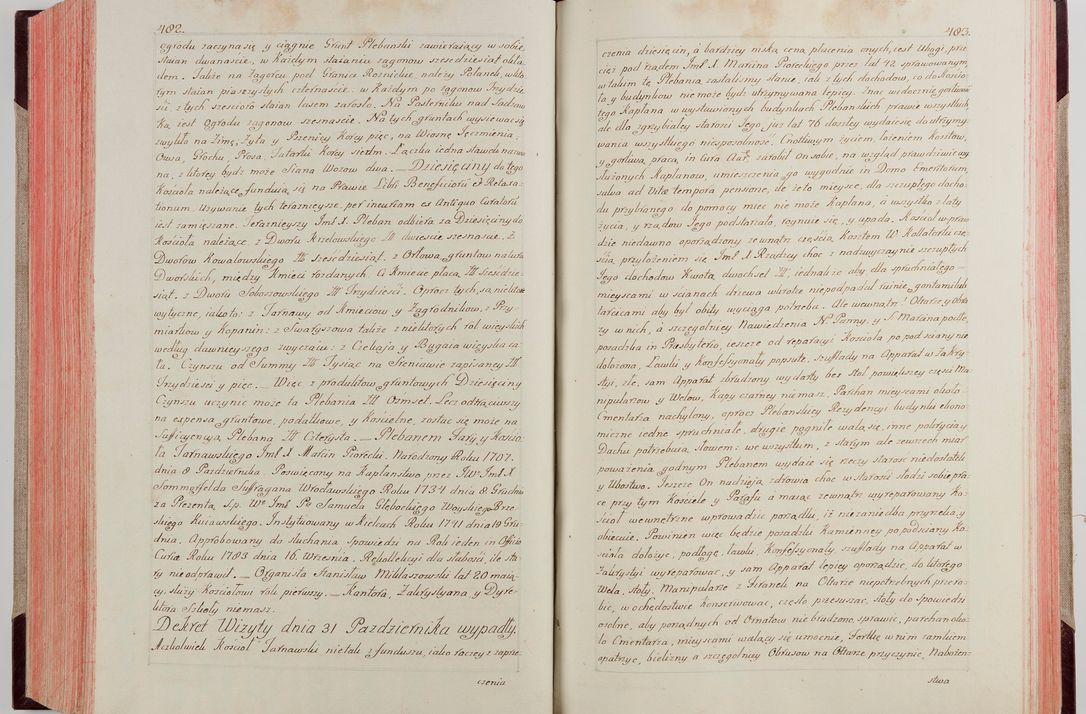 482.
ogrodu zaczyna się y ciągnie Grunt Plebanski zawieraiący w sobie
staian dwanascie, w każdym staianiu zagonow szescdziesiąt okła
dem. Także na Zagórcu pod Granicą Rożnickie należy Polanek, w któ
rym staian piaszczystych czternascie: w każdym po zagonow Trzydzie
sci, z tych szescioro staian lasem zarosło. Na Pasterniku nad Sadzaw
ką iest Ogrodu zagonow szesnascie. Na tych gruntach wysiewac się
zwykło na Zimę, Zyta y Pszenicy Korcy pięc, na Wiosnę Jęczmienia,
Owsa, Grochu, Prosa, Tatarki Korcy siedm. Łączka iedna stawek nazwa
na, z ktorey bydz może Siana Wozow dwa. — Dziesięciny do tego
Kościoła należące, fundują się na Prawie Libri Beneficiorū et Retaxa-
tionum. Używanie tych teraznieysze, per incuriam et Antiquo Curatorū
iest zamięszane. Teraznieyszy Iml X. Pleban odbiera za Dziesięciny do
Kościoła należące: z Dworu Krzelowskiego zł dwiescie szesnascie. Z
Dworow Kowalowskiego zł szescdziesiąt. z Orłowa gruntow natura
Dworskich, między Kmieci rozdanych Ci Kmiecie płacą zł szescdzie-
siąt. z Dworu Soboszowskiego zł Trzydziesci. Oprocz tych, są niektore
wytyczne, iakoto: z Tarnawy od Kmieciow y Zagrodnikow, z Przy-
miarkow y Kopanin: z Swaryszowa także z niektorych rol wieyskich
według dawnieyszego zwyczaiu: z Ciekoia y Bugaia wieyska ca-
ła. Czynszu od Summy zł Tysiąc na Sieniawie zapisaney zł
Trzydziesci y pięc. — Więc z produktow gruntowych Dziesięciny
Czynszu uczynic może ta Plebania zł Osmset. Lecz odtrąciwszy
na expensa gruntowe, podatkowe, y Kościelne, zostac się może na
Sufficyencyą Plebana zł Czterysta. — Plebanem Fary y Kościo-
ła Tarnawskiego Iml X Marcin Piorecki. Narodzony Roku 1707.
dnia 8 Pazdziernika. Poswięcony na Kapłanstwo przez JWo Iml X
Sommerfelda Suffragana Wrocławskiego Roku 1734 dnia 8 Grudnia
za Prezentą s.p. We Iml Po Samuela Głebockiego Woyskiego Brze-
skiego Kuiawskiego. Instytuowany w Kielcach Roku 1741 dnia 19 Gru-
dnia. Approbowany do słuchania Spowiedzi na Rok ieden in Officio
Curiæ Roku 1783 dnia 16. Września. Rekollekcyi dla słabości, ile sta-
ry nieodprawił. — Organista Stanisław Mikłaszowski lat 20 maią-
cy, służy Kościołowi rok pierwszy. — Kantora, Zakrystyana y Dyre-
ktora Szkoły niemasz.
Dekret Wizyty dnia 31 Pazdziernika wypadły.
Aczkolwiek Kościoł Tarnawski nietak z funduszu, iako raczey z zaprze-
czenia
483.
czenia dziesięcin, a bardziey niską ceną płacenia onych, iest Ubogi, prze
ciez pod rządem Iml X. Marcina Pioreckiego przez lat 42 sprawowanym,
w takim tę Plebanią zastalismy stanie, iak z tych dochodow, co do Kościo-
ła y budynkow niemoże bydz utrzymywana lepiey. Znac widocznie gorliwosc
tego Kapłana w wystawionych budynkach Plebanskich prawie wszystkich,
ale dla zgrzybiałey starosci Jego, iuz lat 76 doszłey wydaie się do utrzymy-
wania wszystkiego niesposobnosc. Cnotliwym życiem, łożeniem kosztow,
y gorliwą pracą in Cura Aar, zarobił on sobie, na wzgląd prawdziwie wy
służonych Kapłanow, umieszczenia go wygodnie in Domo Emeritorum,
salva ad Vitæ tempora pensione, ile że to mieysce, dla szczupłego docho-
du przybranego do pomocy miec nie może Kapłana, a wszystko z laty
życia, y rządow Jego podstarzało, ruynuie się, y upada. Kościoł w praw
dzie niedawno oporządzony zewnątrz częscią Kosztem W. Kollatorki czę-
scią przyłożeniem się Iml X Rządzcy choc z nadzwyczaynie szczupłych
Jego dochodow Kwotą dwochset zł, iednakże aby dla spruchniałego
mieyscami w scianach drzewa wkrotce niepodpadał ruinie, gontami lub
tarcicami aby był obity wyciąga potrzeba. Ale wewnątrz! Ołtarze y Obra
zy w nich, a szczegolniey Nawiedzenia N. Panny, y S. Marcina podłe,
posadzka in Presbyterio, ieszcze od reparacyi Kościoła po pod sciany nie
dołożona, Ławki y Konfessyonały popsute, szuflady na Apparat w Zakry-
styi, złe, sam Apparat zbrudzony wydarty bez Stoł powiększey częsci Ma-
nipularzow y Welow, Kapy czarney niemasz, Parkan mieyscami około
Cmentarza nachylony, oprocz Plebanskiey Rezydencyi budynki ekono-
miczne iedne spruchniałe, drugie pogniłe walą się, inne pokrycia y
Dachu potrzebuią, słowem: we wszystkim, z starym ale zewszech miar
poważenia godnym Plebanem wydaie się rzeczy starosc niedostatek
y Ubostwo. Jeszcze On nadzieją zdrowia choc w starości słodzi sobie pra-
ce przy tym Kosciele y Parafii a maiąc zewnątrz wyreparowany Ko-
scioł wewnetrzne wprowadzic porządki, iż niezaniedba przyrzeka, y
obiecuie. Powinien więc będzie posadzki Kamienney po pod sciany Ko-
scioła dołożyc, podłogę, ławki, Konfessyonały, szuflady na Apparat w
Zakrystyi wyreparowac, y sam Apparat lepiey oporządzic, do ktorego
Wela, stoły, Manipularze z Firanek na Ołtarze niepotrzebnych przero-
bic, w ochędostwie konserwowac, często przesuszac, stoły do Spowiedzi
osobne, aby porządnych od Ornatow nie brudzono, sprawic, parkan oko-
ło Cmentarza, mieyscami walący się umocnic, Fortkę w nim zamkiem
opatrzyc, bielizny a szczegolniey Obrusow na Ołtarze przyczynic, Nabożen-
stwa